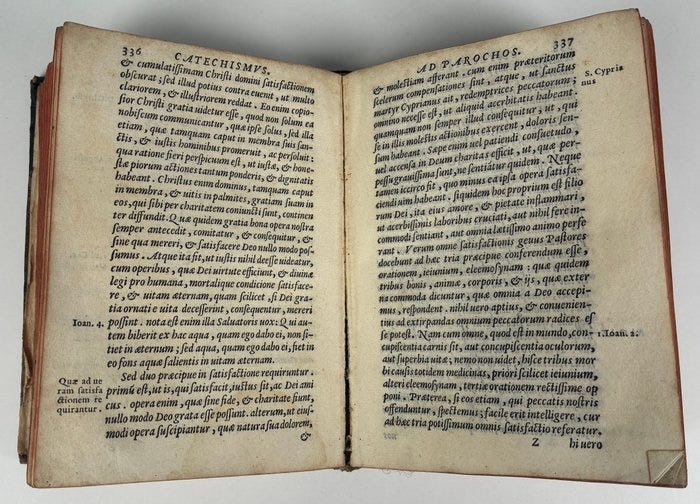 336
CATECHISMVS.
& cumulatissimam Christi domini satisfactionem
obscurat; sed illud potius contra euenit, ut multo
clariorem, & illustriorem reddat. Eo enim copio-
sior Christi gratia uidetur esse, quod non solum ea
nobiscum communicantur, quæ ipse solus, sed illa
etiam, quæ tamquam caput in membris suis san-
ctis, & iustis hominibus promeruit, ac persoluit:
qua ratione fieri perspicuum est, ut iustæ, & hone-
stæ piorum actiones tantum ponderis, & dignitatis
habeant. Christus enim dominus, tamquam caput
in membra, & uitis in palmites, gratiam suam in
eos, qui sibi per charitatem coniuncti sunt, continen
ter diffundit. Quæ quidem gratia bona opera nostra
semper antecedit, comitatur, & consequitur, &
sine qua mereri, & satisfacere Deo nullo modo pos-
sumus. Atque ita fit, ut iustis nihil deesse uideatur,
cum operibus, quæ Dei uirtute efficiunt, & diuinæ
legi pro humana, mortalique conditione satisface-
re, & uitam æternam, quam scilicet, si Dei gra-
tia ornati e uita decesserint, consequentur, mereri
Ioan. 4.
possint. nota est enim illa Saluatoris uox: Qui au-
tem biberit ex hac aqua, quam ego dabo ei, non si-
tiet in æternum; sed aqua, quam ego dabo ei, fiet in
eo fons aquæ salientis in uitam æternam.
Quæ ad ue
ram satisfa
ctionem re
quirantur.
Sed duo præcipue in satisfactione requiruntur.
primũ est, ut is, qui satisfacit, iustus sit, ac Dei ami
cus. opera enim, quæ sine fide, & charitate fiunt,
nullo modo Deo grata esse possunt. alterum, ut eius-
modi opera suscipiantur, quæ natura sua dolorem,
&
AD PAROCHOS.
337
& molestiam afferant. cum enim præteritorum
S. Cypria
nus
scelerum compensationes sint, atque, ut sanctus
martyr Cyprianus ait, redemptrices peccatorum;
omnino necesse est, ut aliquid acerbitatis habeant.
quamquam non semper illud consequitur, ut, qui
se in illis molestis actionibus exercent, doloris sen-
sum habeant. Sæpe enim uel patiendi consuetudo,
uel accensa in Deum charitas efficit, ut, quæ per-
pessu grauissima sunt, ne sentiantur quidem. Neque
tamen iccirco fit, quo minus ea ipsa opera satisfa-
ciendi uim habeant. siquidem hoc proprium est filio
rum Dei, ita eius amore, & pietate inflammari,
ut acerbissimis laboribus cruciati, aut nihil fere in-
commodi sentiant, aut omnia lætissimo animo perfe
rant. Verum omne satisfactionis genus Pastores
docebunt ad hæc tria præcipue conferendum esse,
orationem, ieiunium, eleemosynam: quæ quidem
tribus bonis, animæ, corporis, & ijs, quæ exter
na commoda dicuntur, quæ omnia a Deo accepi-
mus, respondent. nihil uero aptius, & conuenien-
tius ad extirpandas omnium peccatorum radices es
1. Ioan. 2.
se potest. Nam cum omne, quod est in mundo, con-
cupiscentia carnis sit, aut concupiscentia oculorum,
aut superbia uitæ; nemo non uidet, hisce tribus mor
bi causis totidem medicinas, priori scilicet ieiunium,
alteri eleemosynam, tertiæ orationem rectissime op
poni. Præterea, si eos etiam, qui peccatis nostris
offenduntur, spectemus; facile erit intelligere, cur
ad hæc tria potissimum omnis satisfactio referatur.
Z
hi uero